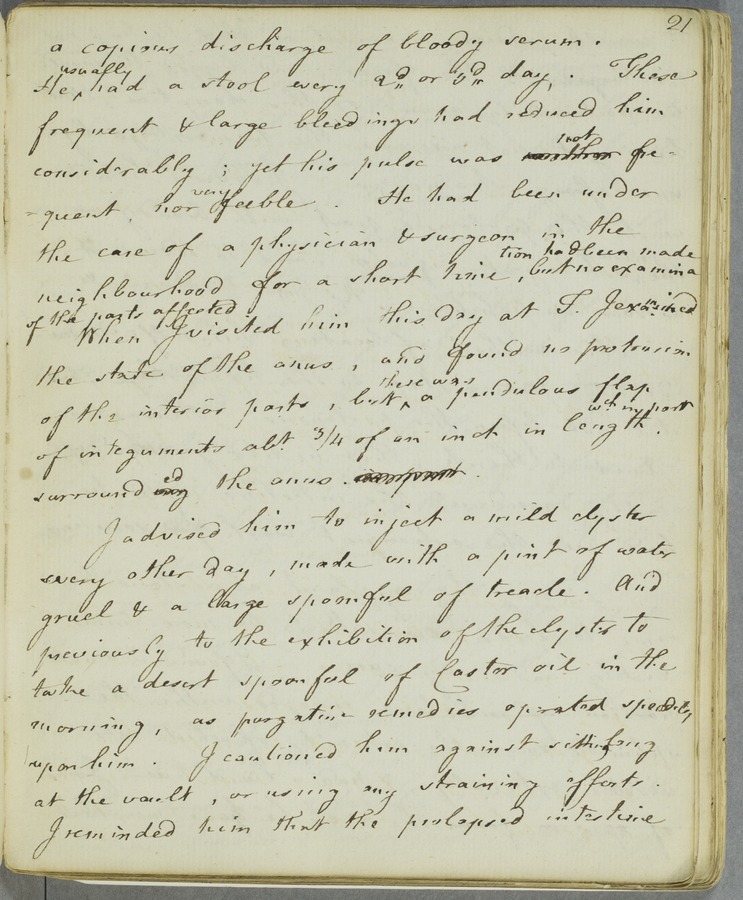 21
a copious discharge of bloody serum.
He usually had a stool every 2d or 3d day. These
frequent & large bleedings had reduced him
considerably; yet his pulse was not fre-
-quent, nor very feeble. He had been under
the care of a physician & surgeon in the
neighbourhood for a short time, but no examina
tion had been made
of the parts affected.
When I visited him this day at T. I examined
the state of the anus, and found no protrusion
of the interior parts, but there was a pendulous flap
of integuments abt. 3/4 of an inch in length.
wch in part
surrounded the anus.
I advised him to inject a mild clyster
every other day, made with a pint of water
gruel & a large spoonful of treacle. And
previously to the exhibition of the clyster to
take a desert spoonful of Castor oil in the
morning, as purgative remedies operated speedily
upon him. I cautioned him against sitting long
at the vault, or using any straining efforts.
I reminded him that the prolapsed intestine